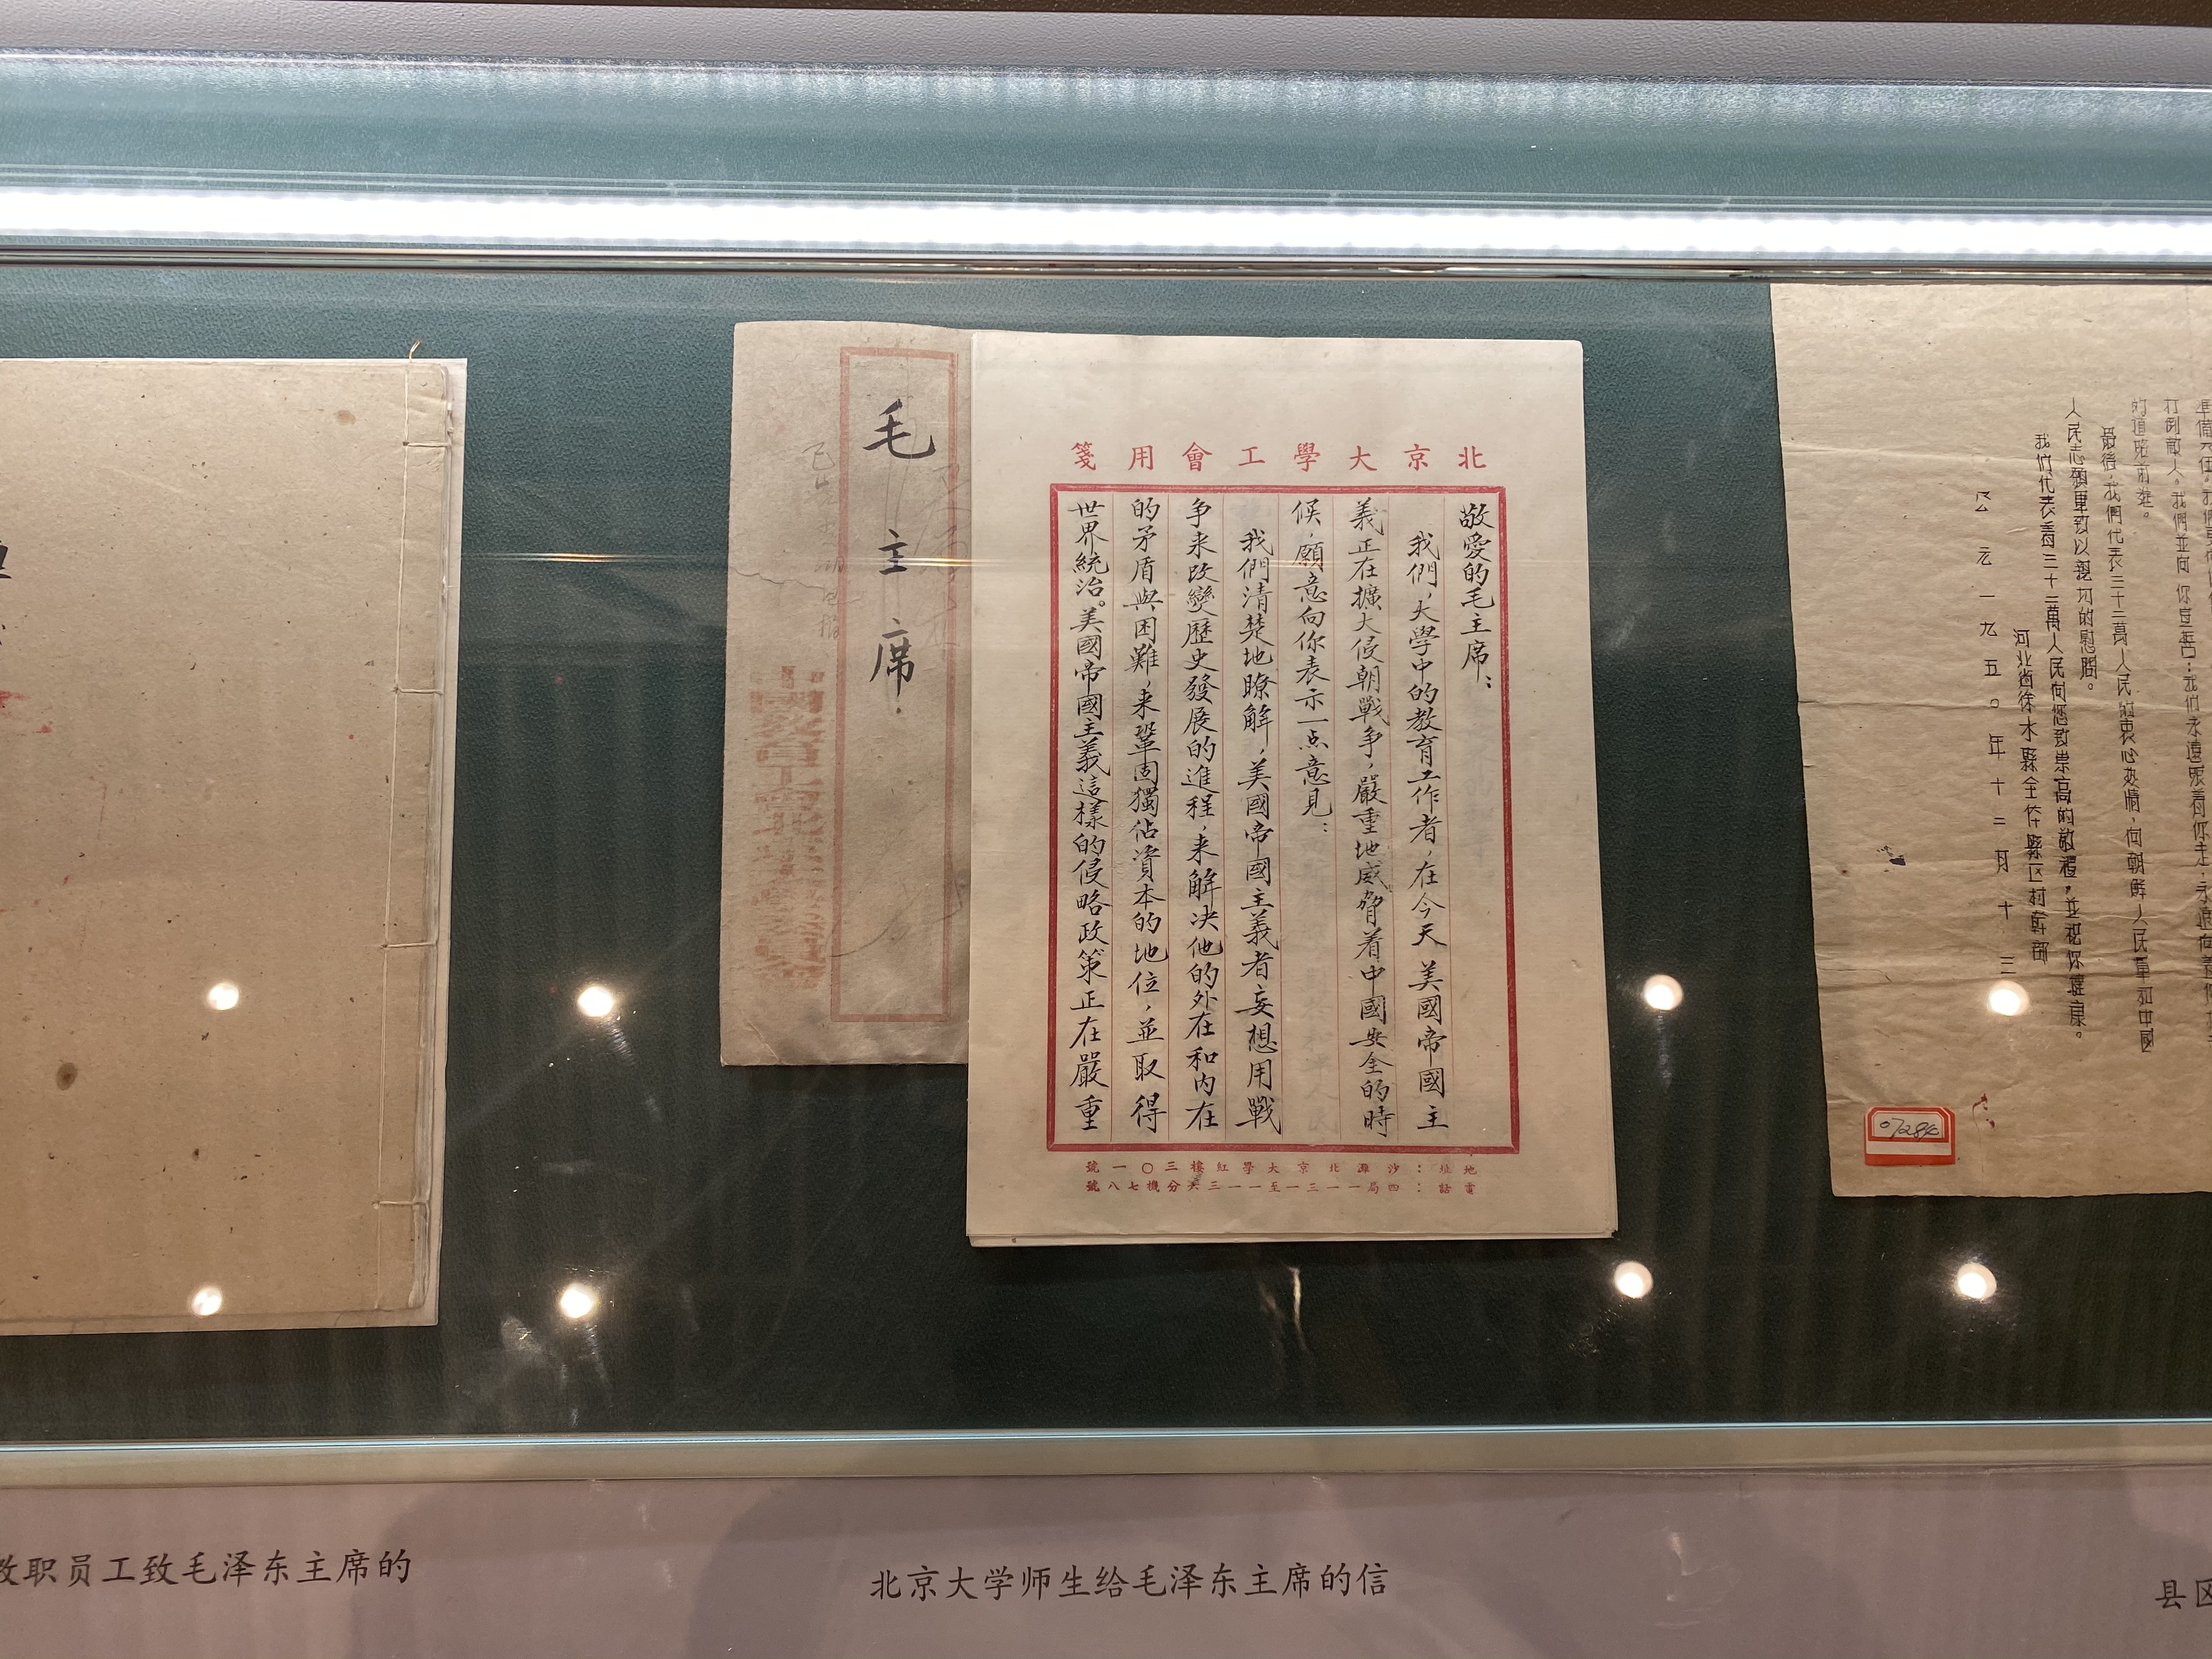 北京大學工會用箋
敬愛的毛主席：
我們，大學中的教育工作者，在今天美國帝國主
義正在擴大侵朝戰争，嚴重地威脅着中國安全的時
候，願意向你表示一点意見：
我們清楚地瞭解，美國帝國主義者妄想用戰
争来改變歷史發展的進程，来解决他的外在和内在
的矛盾與困難，来鞏固獨佔資本的地位，並取得
世界統治。美國帝國主義這樣的侵略政策正在嚴重
地址：沙灘北京大學紅樓三〇一號
電話：四局一一三一至一一三六分機七八號
毛主席
的道路前進。
最後，我們代表三十三萬人民的衷心熱情，向朝鮮人民軍和中國
人民志願軍致以親切的慰問。
我们代表着三十三萬人民向您致崇高的敬禮，並祝你健康。
河北省徐水縣全体縣区村幹部
公元一九五〇年十二月十三
教职员工致毛泽东主席的
北京大学师生给毛泽东主席的信
县区